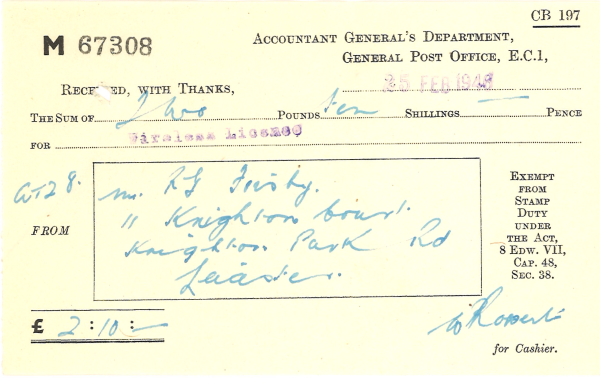 CB 197
M 67308
ACCOUNTANT GENERAL'S DEPARTMENT,
GENERAL POST OFFICE, E.C.1,
25 FEB 1948
RECEIVED, WITH THANKS,
THE SUM OF Two POUNDS ten SHILLINGS — PENCE
FOR Wireless License
Mr. RG
11 Knighton Court.
Knighton Park Rd
Leicester.
FROM
EXEMPT
FROM
STAMP
DUTY
UNDER
THE ACT,
8 EDW. VII,
CAP. 48,
SEC. 38.
£ 2:10:—
for Cashier.